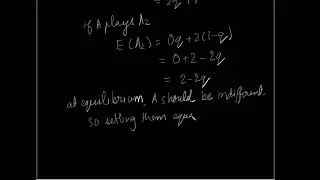 if A plays A2
E(A2) = 0q + 2(1-q)
= 0 + 2 - 2q
= 2 - 2q
at equilibrium, A should be indifferent.
so setting them equa